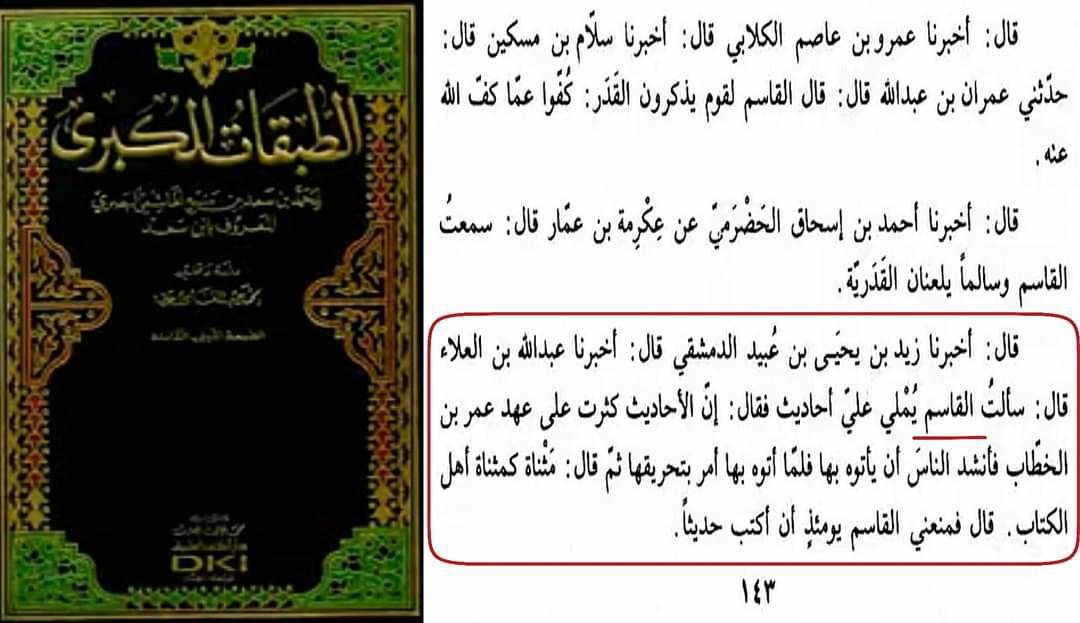 الطبقات الكبرى
لمحمد بن سعد بن منيع الهاشمي البصري
المعروف بابن سعد
دراسة وتحقيق
محمد عبد القادر عطا
DKI
قال: أخبرنا عمرو بن عاصم الكلابي قال: أخبرنا سلّام بن مسكين قال:
حدّثني عمران بن عبدالله قال: قال القاسم لقوم يذكرون القَدَر: كُفّوا عمّا كفّ الله
عنه.
قال: أخبرنا أحمد بن إسحاق الحَضْرَميّ عن عِكْرِمة بن عمّار قال: سمعتُ
القاسم وسالماً يلعنان القَدَريّة.
قال: أخبرنا زيد بن يحيَى بن عُبيد الدمشقي قال: أخبرنا عبدالله بن العلاء
قال: سألتُ القاسم يُمْلي عليّ أحاديث فقال: إنّ الأحاديث كثرت على عهد عمر بن
الخطّاب فأنشد الناسَ أن يأتوه بها فلمّا أتوه بها أمر بتحريقها ثمّ قال: مَثْناة كمثناة أهل
الكتاب. قال فمنعني القاسم يومئذٍ أن أكتب حديثاً.
١٤٣